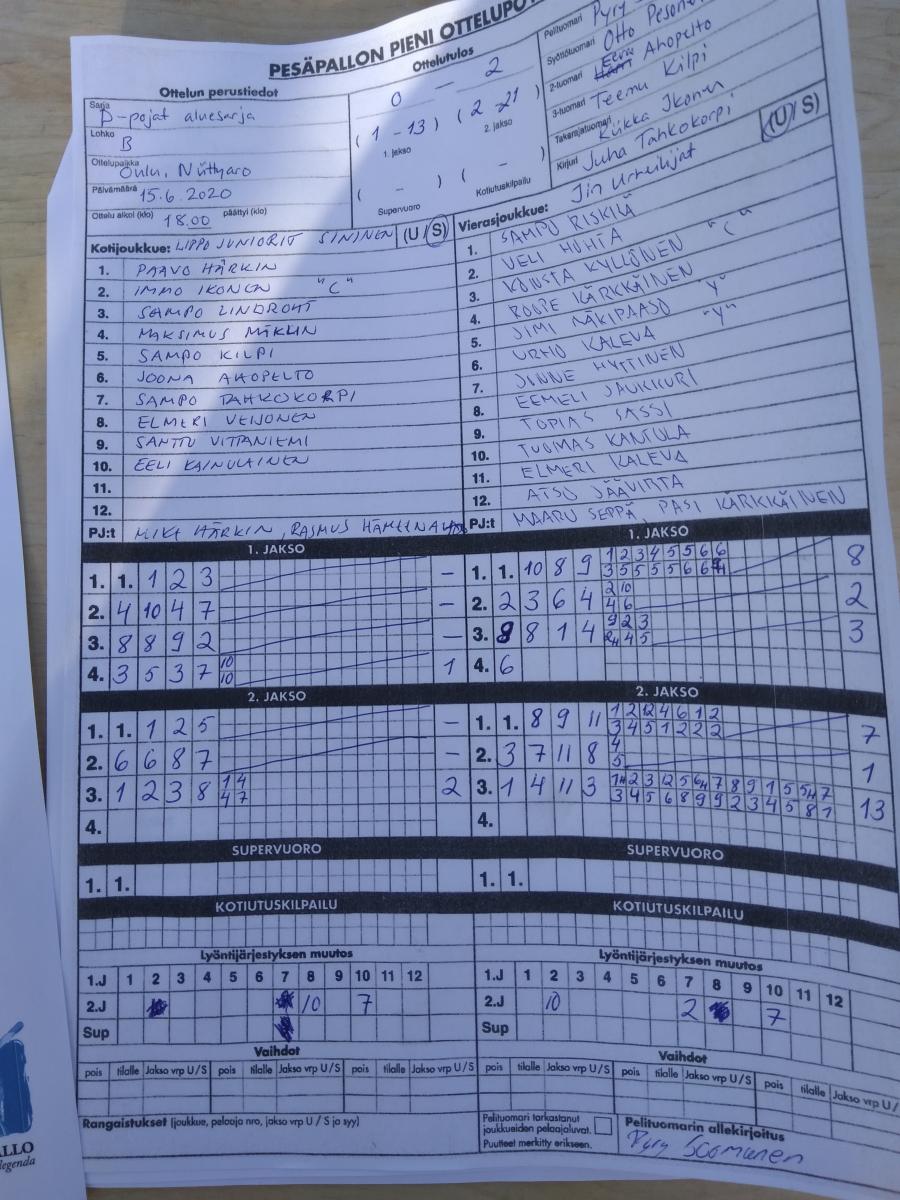 PESÄPALLON PIENI OTTELUPÖ
Ottelun perustiedot
Sarja D-pojat aluesarja
Lohko B
Ottelupaikka Oulu, Niittyaro
Päivämäärä 15.6.2020
Ottelu alkoi (klo) 18.00 päättyi (klo)
Ottelutulos
0 - 2
(1 - 13) (2 - 21)
1. jakso 2. jakso
( - ) ( - )
Supervuoro Kotiutuskilpailu
Pelituomari Pyry
Syöttötuomari Otto Peson
2-tuomari Eeva Ahopelto
3-tuomari Teemu Kilpi
Takarajatuomari Riikka Ikonen
Kirjuri Juha Tahkokorpi
Kotijoukkue: LIPPO JUNIORIT SININEN (U/S)
1. PAAVO HÄRKIN
2. IMMO IKONEN "C"
3. SAMPO LINDROHT
4. MAKSIMUS MIKLIN
5. SAMPO KILPI
6. JOONA AHOPELTO
7. SAMPO TAHKOKORPI
8. ELMERI VEIJONEN
9. SANTTU VITTANIEMI
10. EELI KAINULAINEN
11.
12.
PJ:t MIKA HÄRKIN, RASMUS
Vierasjoukkue: Jin Urheilijat (U/S)
1. SAMPO RISKILÄ
2. VELI HUHTA
3. KONSTA KYLLÖNEN "C"
4. ROOPE KÄRKKÄINEN
5. JIMI NÄKIPAASO "Y"
6. URHO KALEVA "Y"
7. JINNE HYTTINEN
8. EEMELI JAUKKURI
9. TOPIAS SASSI
10. TUOMAS KANTOLA
11. ELMERI KALEVA
12. ATSO JÄÄVIRTA
PJ:t MAARU SEPPÄ, PASI KÄRKKÄINEN
1. JAKSO
1. 1. 1 2 3 -
2. 4 10 4 7 -
3. 8 8 9 2 -
4. 3 5 3 7 10 1
10
2. JAKSO
1. 1. 1 2 5 -
2. 6 6 8 7 -
3. 1 2 3 8 1 4 2
4 7
4.
SUPERVUORO
1. 1.
KOTIUTUSKILPAILU
1. JAKSO
1. 1. 10 8 9 1 2 3 4 5 5 6 6 8
3 5 5 5 5 6 6
2. 2 3 6 4 2 10 2
4 6
3. 8 8 1 4 9 2 3 3
4 5
4. 6
2. JAKSO
1. 1. 8 9 11 1 2 12 4 6 1 2 7
3 4 5 1 2 2 2
2. 3 7 11 8 4 1
5
3. 1 4 11 3 2 3 12 5 7 8 9 1 5 7 13
3 4 5 6 8 9 9 2 3 4 5 8 1
4.
SUPERVUORO
1. 1.
KOTIUTUSKILPAILU
Lyöntijärjestyksen muutos
1.J 1 2 3 4 5 6 7 8 9 10 11 12
2.J 10 7
Sup
Vaihdot
pois tilalle Jakso vrp U/S pois tilalle Jakso vrp U/S pois tilalle Jakso vrp U/S
Lyöntijärjestyksen muutos
1.J 1 2 3 4 5 6 7 8 9 10 11 12
2.J 10 2 7
Sup
Vaihdot
pois tilalle Jakso vrp U/S pois tilalle Jakso vrp U/S pois tilalle Jakso vrp U/
Rangaistukset (joukkue, pelaaja nro, jakso vrp U / S ja syy)
Pelituomari tarkastanut
joukkueiden pelaajaluvat.
Puutteet merkitty erikseen.
Pelituomarin allekirjoitus
Pyry Soomanen
ALLO
legenda